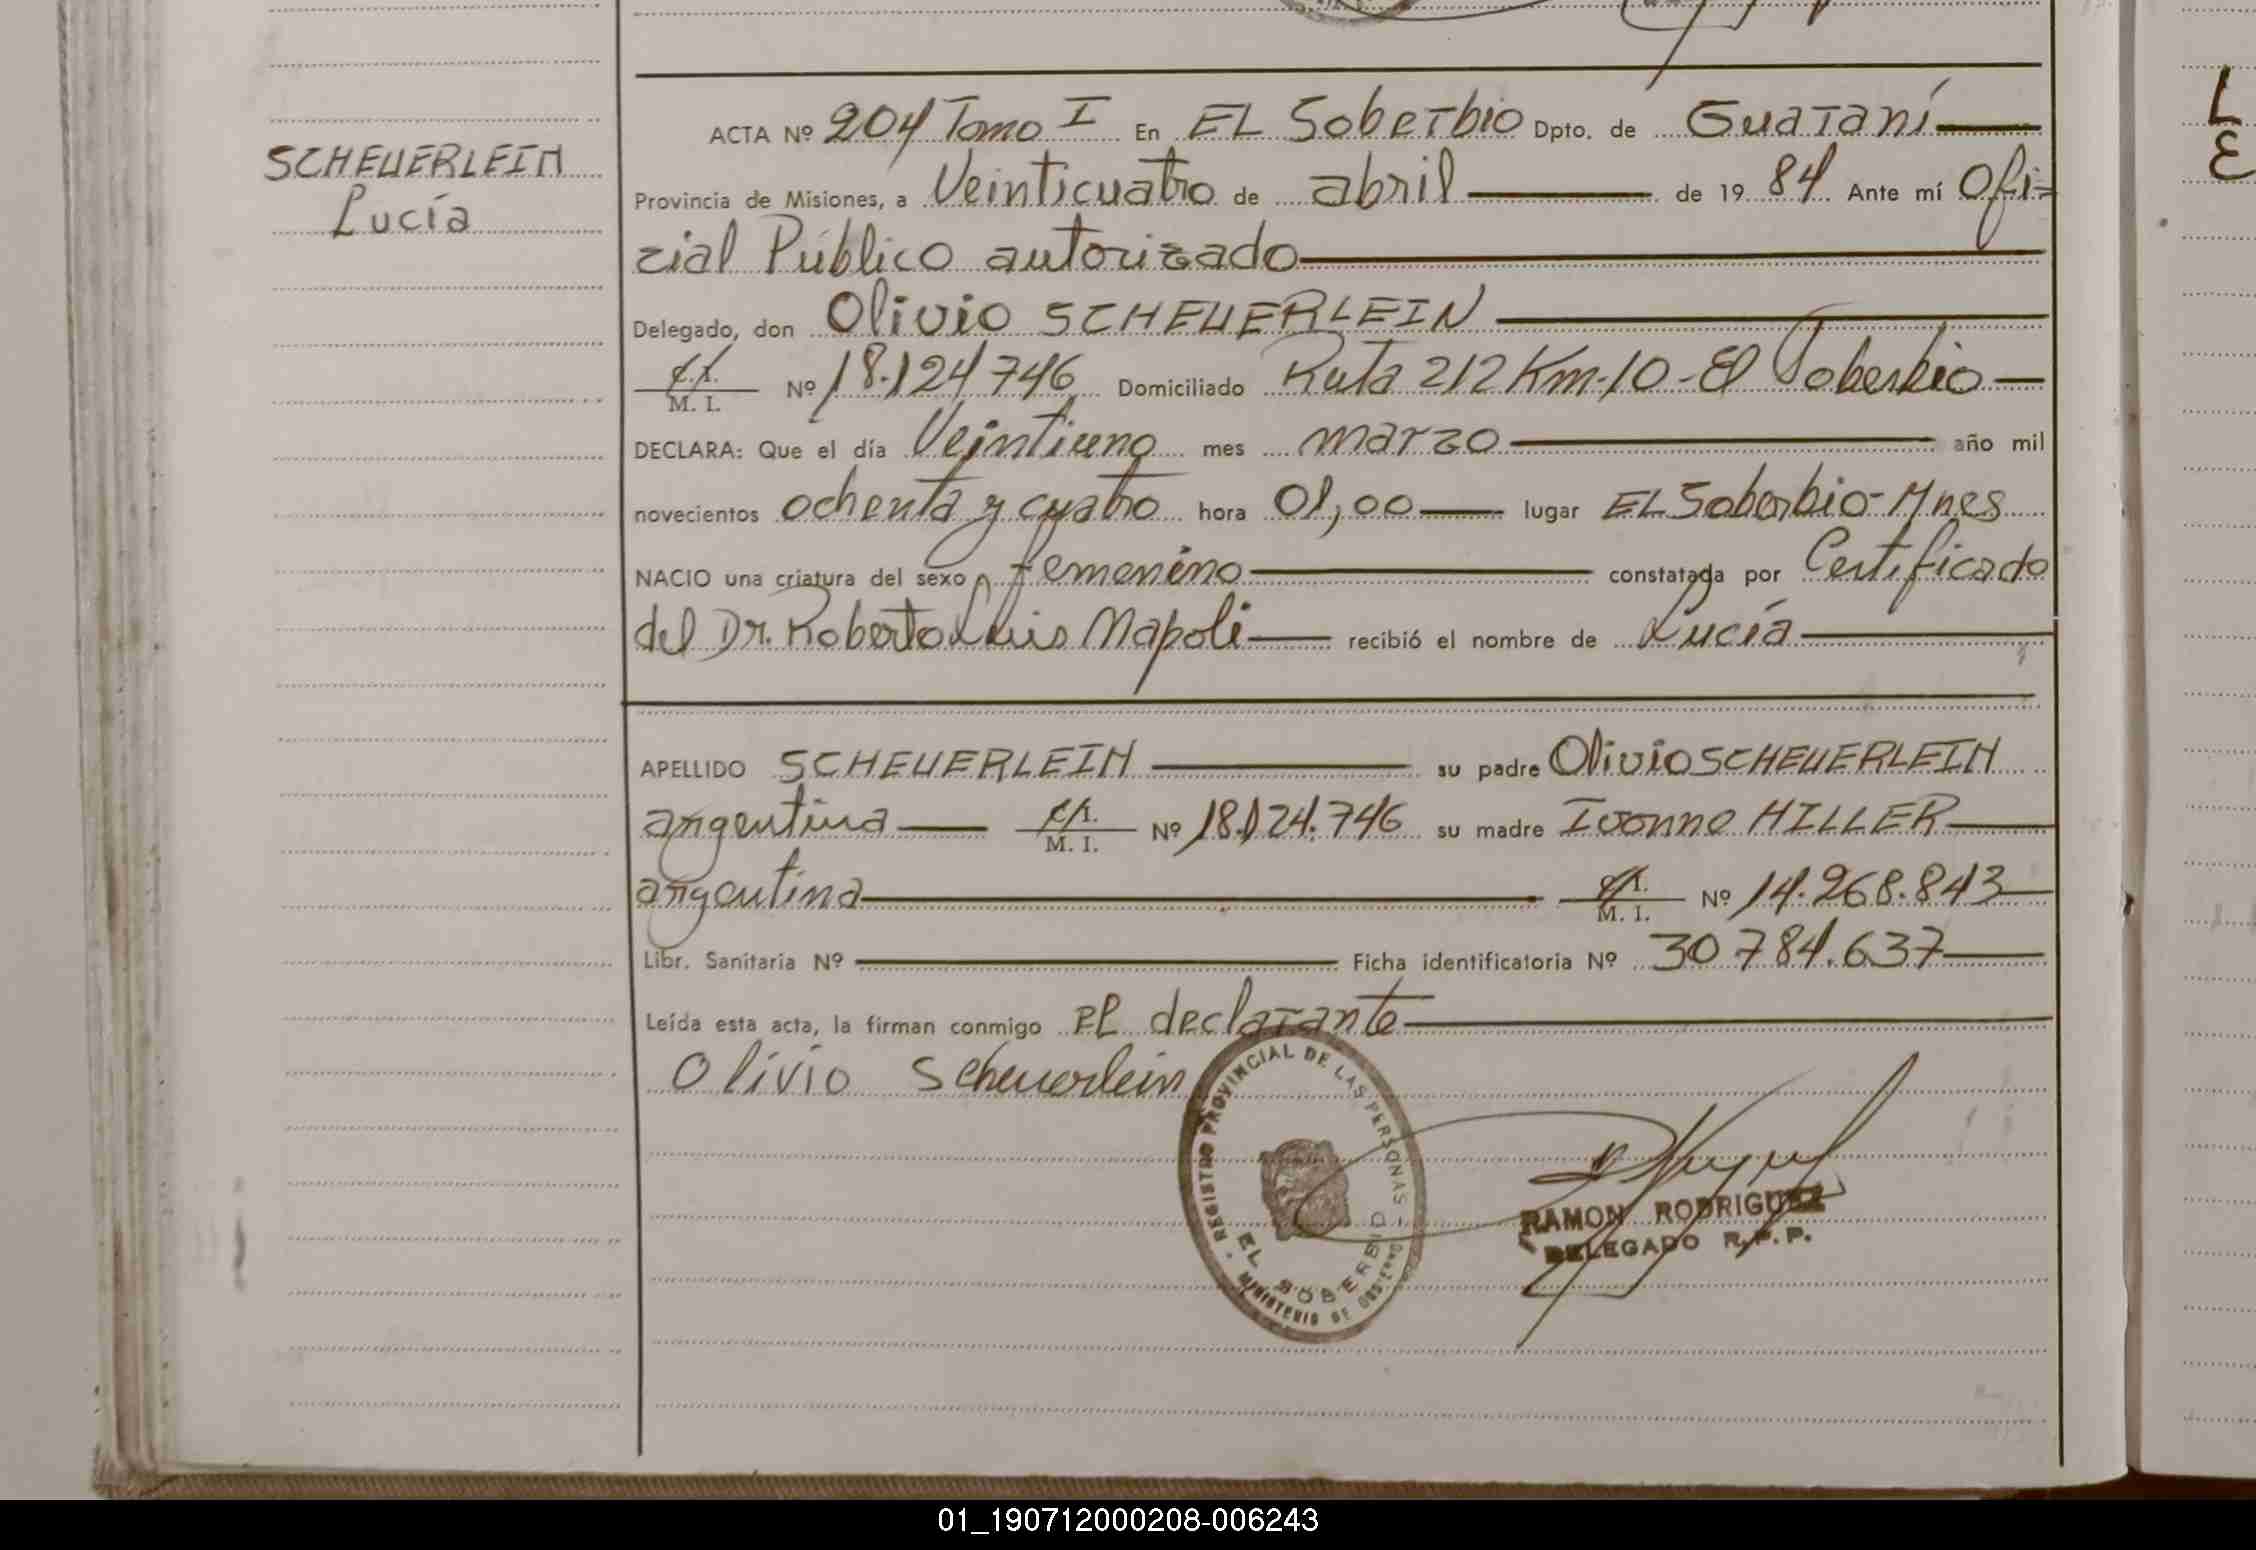 SCHEUERLEIN
Lucía
ACTA Nº 204 Tomo I En EL Soberbio Dpto. de Guaraní
Provincia de Misiones, a Veinticuatro de abril de 19 84 Ante mí Ofi=
cial Público autorizado
Delegado, don Olivio SCHEUERLEIN
C.I.
M. I. Nº 18.124746 Domiciliado Ruta 212 Km-10-El Soberbio
DECLARA: Que el día Veintiuno mes marzo año mil
novecientos ochenta y cuatro hora 01,00 lugar EL Soberbio-Mnes
NACIO una criatura del sexo femenino constatada por Certificado
del Dr. Roberto Luis Napoli recibió el nombre de Lucía
APELLIDO SCHEUERLEIN su padre Olivio SCHEUERLEIN
argentina C.I.
M. I. Nº 18.124.746 su madre Ivonne HILLER
argentina C.I.
M. I. Nº 14.268.843
Libr. Sanitaria Nº Ficha identificatoria Nº 30784.637
Leída esta acta, la firman conmigo el declarante
Olivio Scheuerlein
REGISTRO PROVINCIAL DE LAS PERSONAS
EL SOBERBIO
MINISTERIO DE GOBIERNO
RAMON RODRIGUEZ
DELEGADO R.P.P.
L
E
01_190712000208-006243